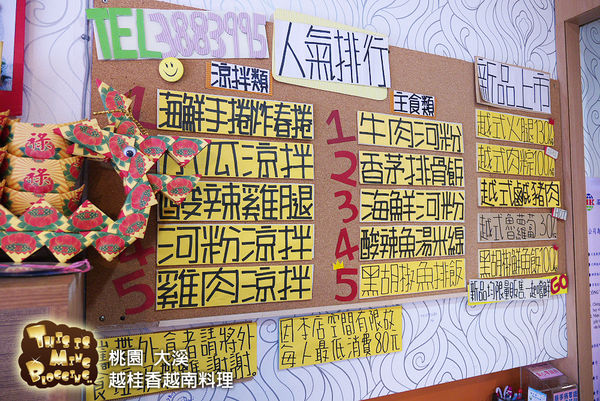 TEL 3883995
人氣排行
涼拌類
海鮮手捲炸春捲
木瓜涼拌
酸辣雞腿
河粉涼拌
雞肉涼拌
主食類
1 牛肉河粉
2 香茅排骨飯
3 海鮮河粉
4 酸辣魚湯米線
5 黑胡椒魚排飯
新品上市
越式火腿130
越式肉粽100
越式鹹豬肉
越式魯蘿蔔30
黑胡椒鮮魚100
GO
因本店空間有限故
每人最低消費80元
帶外食者請將外
謝謝
THIS IS MINE BLOGGIVE.
桃園 大溪
越桂香越南料理